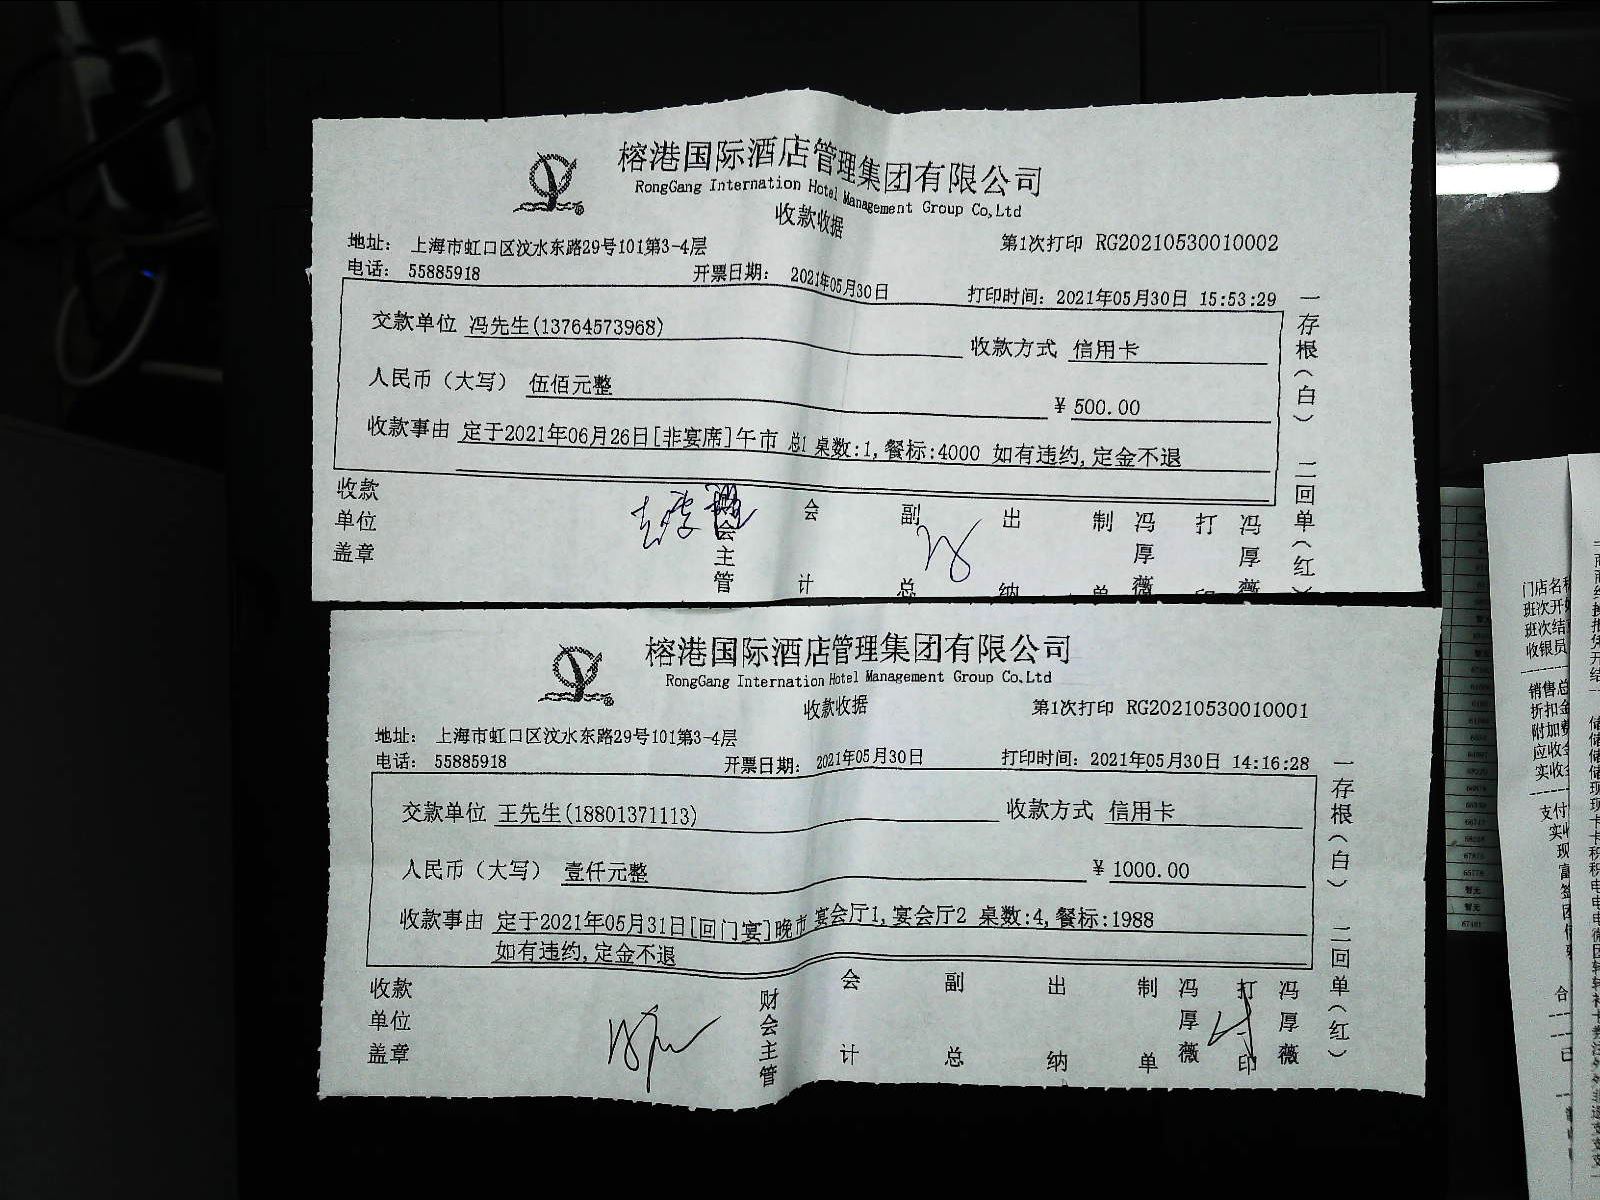 榕港国际酒店管理集团有限公司
RongGang Internation Hotel Management Group Co,Ltd
收款收据
第1次打印 RG20210530010002
地址： 上海市虹口区汶水东路29号101第3-4层
电话： 55885918
开票日期： 2021年05月30日
打印时间：2021年05月30日 15:53:29
交款单位 冯先生(13764573968)
收款方式 信用卡
人民币（大写） 伍佰元整
¥ 500.00
收款事由 定于2021年06月26日[非宴席]午市 总1 桌数:1,餐标:4000 如有违约,定金不退
收款单位盖章
会主管
会计
副总
出纳
制单
冯厚薇
打印
冯厚薇
一存根（白） 二回单（红）
榕港国际酒店管理集团有限公司
RongGang Internation Hotel Management Group Co.Ltd
收款收据
第1次打印 RG20210530010001
地址： 上海市虹口区汶水东路29号101第3-4层
电话： 55885918
开票日期： 2021年05月30日
打印时间：2021年05月30日 14:16:28
交款单位 王先生(18801371113)
收款方式 信用卡
人民币（大写） 壹仟元整
¥ 1000.00
收款事由 定于2021年05月31日[回门宴]晚市 宴会厅1,宴会厅2 桌数:4,餐标:1988
如有违约,定金不退
收款单位盖章
财会主管
会计
副总
出纳
制单
冯厚薇
打印
冯厚薇
一存根（白） 二回单（红）
门店名
班次开
班次结
收银员
销售总
折扣金
附加费
应收
实收
支付